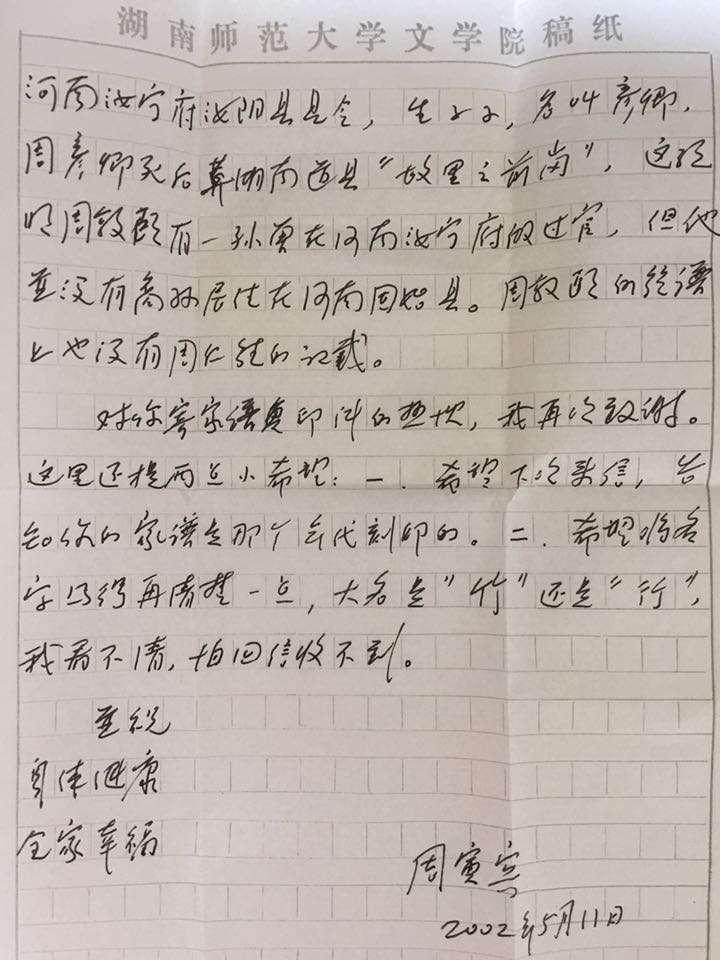 湖南师范大学文学院稿纸
河南汝宁府汝阴县县令，生一子，名叫彦卿，
周彦卿死后葬湖南道县“故里之前岗”，这说
明周敦颐有一孙曾在河南汝宁府做过官，但他
并没有裔孙居住在河南固始县。周敦颐的族谱
上也没有周仁的记载。
对你寄家谱复印件的热忱，我再次致谢。
这里还提两点小希望：一、希望下次来信，告
知你的家谱是那个年代刻印的。二、希望将名
字写得再清楚一点，大名是“竹”还是“行”，
我看不清，怕回信收不到。
并祝
身体健康
全家幸福
周寅宾
2002年5月11日